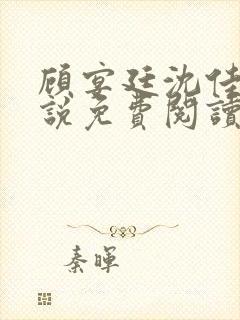 顾宴廷沈佳
說免費閱讀
秦暉